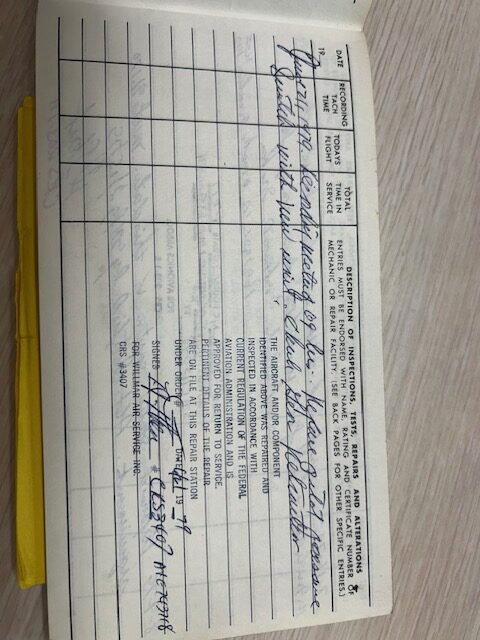 DATE
19
RECORDING
TACH
TIME
TODAYS
FLIGHT
TOTAL
TIME IN
SERVICE
DESCRIPTION OF INSPECTIONS, TESTS, REPAIRS AND ALTERATIONS
ENTRIES MUST BE ENDORSED WITH NAME, RATING AND CERTIFICATE NUMBER OF
MECHANIC OR REPAIR FACILITY. (SEE BACK PAGES FOR OTHER SPECIFIC ENTRIES.)
1979 gear pressure
Switch with new unit. Check gear
THE AIRCRAFT AND/OR COMPONENT
IDENTIFIED ABOVE WAS REPAIRED AND
INSPECTED IN ACCORDANCE WITH
CURRENT REGULATION OF THE FEDERAL
AVIATION ADMINISTRATION AND IS
APPROVED FOR RETURN TO SERVICE.
PERTINENT DETAILS OF THE REPAIR
ARE ON FILE AT THIS REPAIR STATION
UNDER ORDER # DATE 19 79
SIGNED # CRS3407
FOR WILLMAR AIR SERVICE INC.
CRS #3407